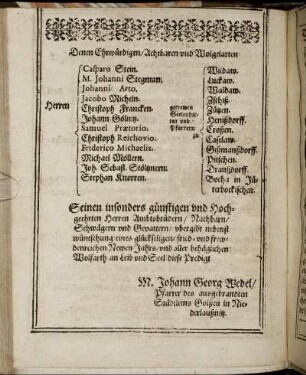 Denen Ehrwürdigen/ Achtbaren und Wolgelarten
Herren
Casparo Stein.
M. Johanni Stegman.
Johanni Arto.
Jacobo Michele.
Christoph Francken.
Johann Göltitz.
Samuel Prætorio.
Christoph Reichovio.
Friderico Michaelis.
Michael Möllern.
Joh. Sebast. Stöltznern.
Stephan Knorren.
getrewen
Seelenhir-
ten und
Pfarren
zu
Luckaw.
Waldaw.
Zützen.
Crossen.
Caselaw.
Pitschen.
Seinen insonders günstigen und Hoch-
geehrten Herren Ambtsbrüdern/ Nachbarn/
Schwägern und Gevattern/ ubergibt nebenst
wüntschung eines glückseligen/ fried- und freu-
denreichen Newen Jahrs/ und aller behäglichen
Wolfarth an Leib und Seel/ diese Predigt
M. Johann Georg Wedel/
Pfarrer des ausgebrandten
Städtleins Golßen in Nie-
derlaußnitz.